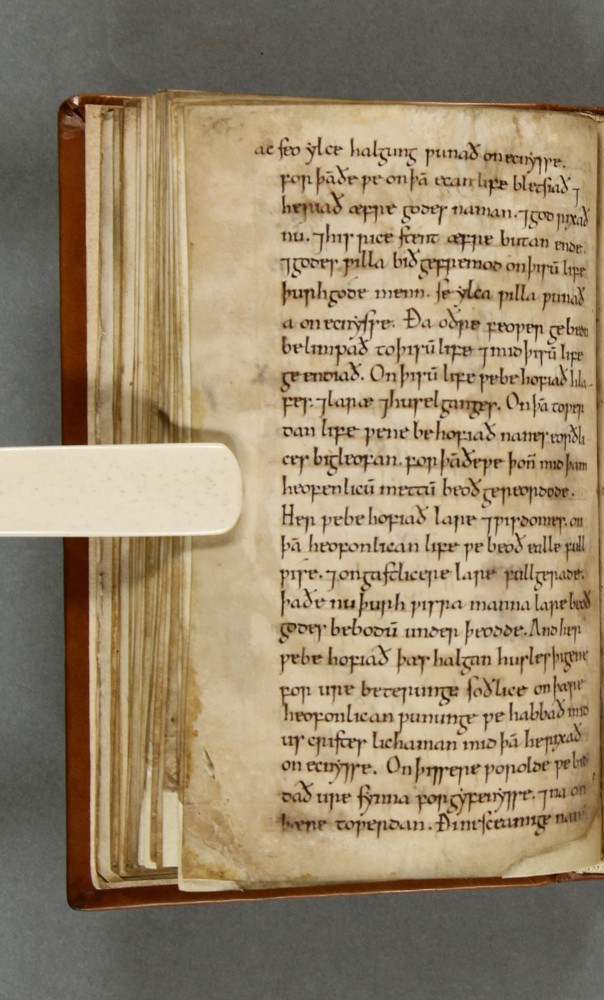 ac seo ylce halgung ƿunað on ecnẏsse.
for þāðe ƿe on þā ecan life bletsiað ⁊
heriað æfre godes naman. ⁊ god rixað
nu. ⁊ his rice stent æfre butan ende.
⁊ godes ƿilla bið gefremod on þisū life
þurh gode menn. se ẏlca ƿilla ƿunað
a on ecnẏsse. Ða oðre feoƿer gebedu
belimpað to þisū life ⁊ mid þisū life
ge endiað. On þisū life ƿe be hofiað hla
fes. ⁊ lare ⁊ husel ganges. On þā toƿer
dan life ƿe ne be hofiað nanes eorðli
ces bigleofan. for þāðe ƿe þoñ mid þam
heofenlicū mettū beoð gereordode.
Her ƿe be hofiað lare ⁊ ƿisdomes. on
þā heofonlican life ƿe beoð ealle full
ƿise. ⁊ on gastlicere lare full gerade.
þāðe nu þurh ƿisra manna lare beoð
godes bebodū under þeodde. And her
ƿe be hofiað þæs halgan husles þigene
for ure beterunge soðlice on þære
heofonlican ƿununge ƿe habbað mid
us cristes lichaman mid þā he rixað
on ecnẏsse. On þissere ƿorolde ƿe bid
dað ure sẏnna forgẏfenẏsse. ⁊ na on
þære toƿerdan.